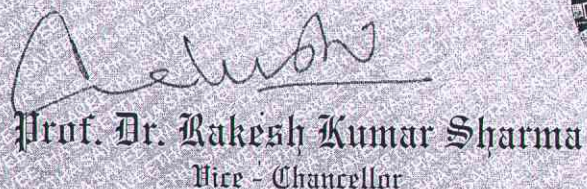 Prof. Dr. Rakesh Kumar Sharma
Vice - Chancellor